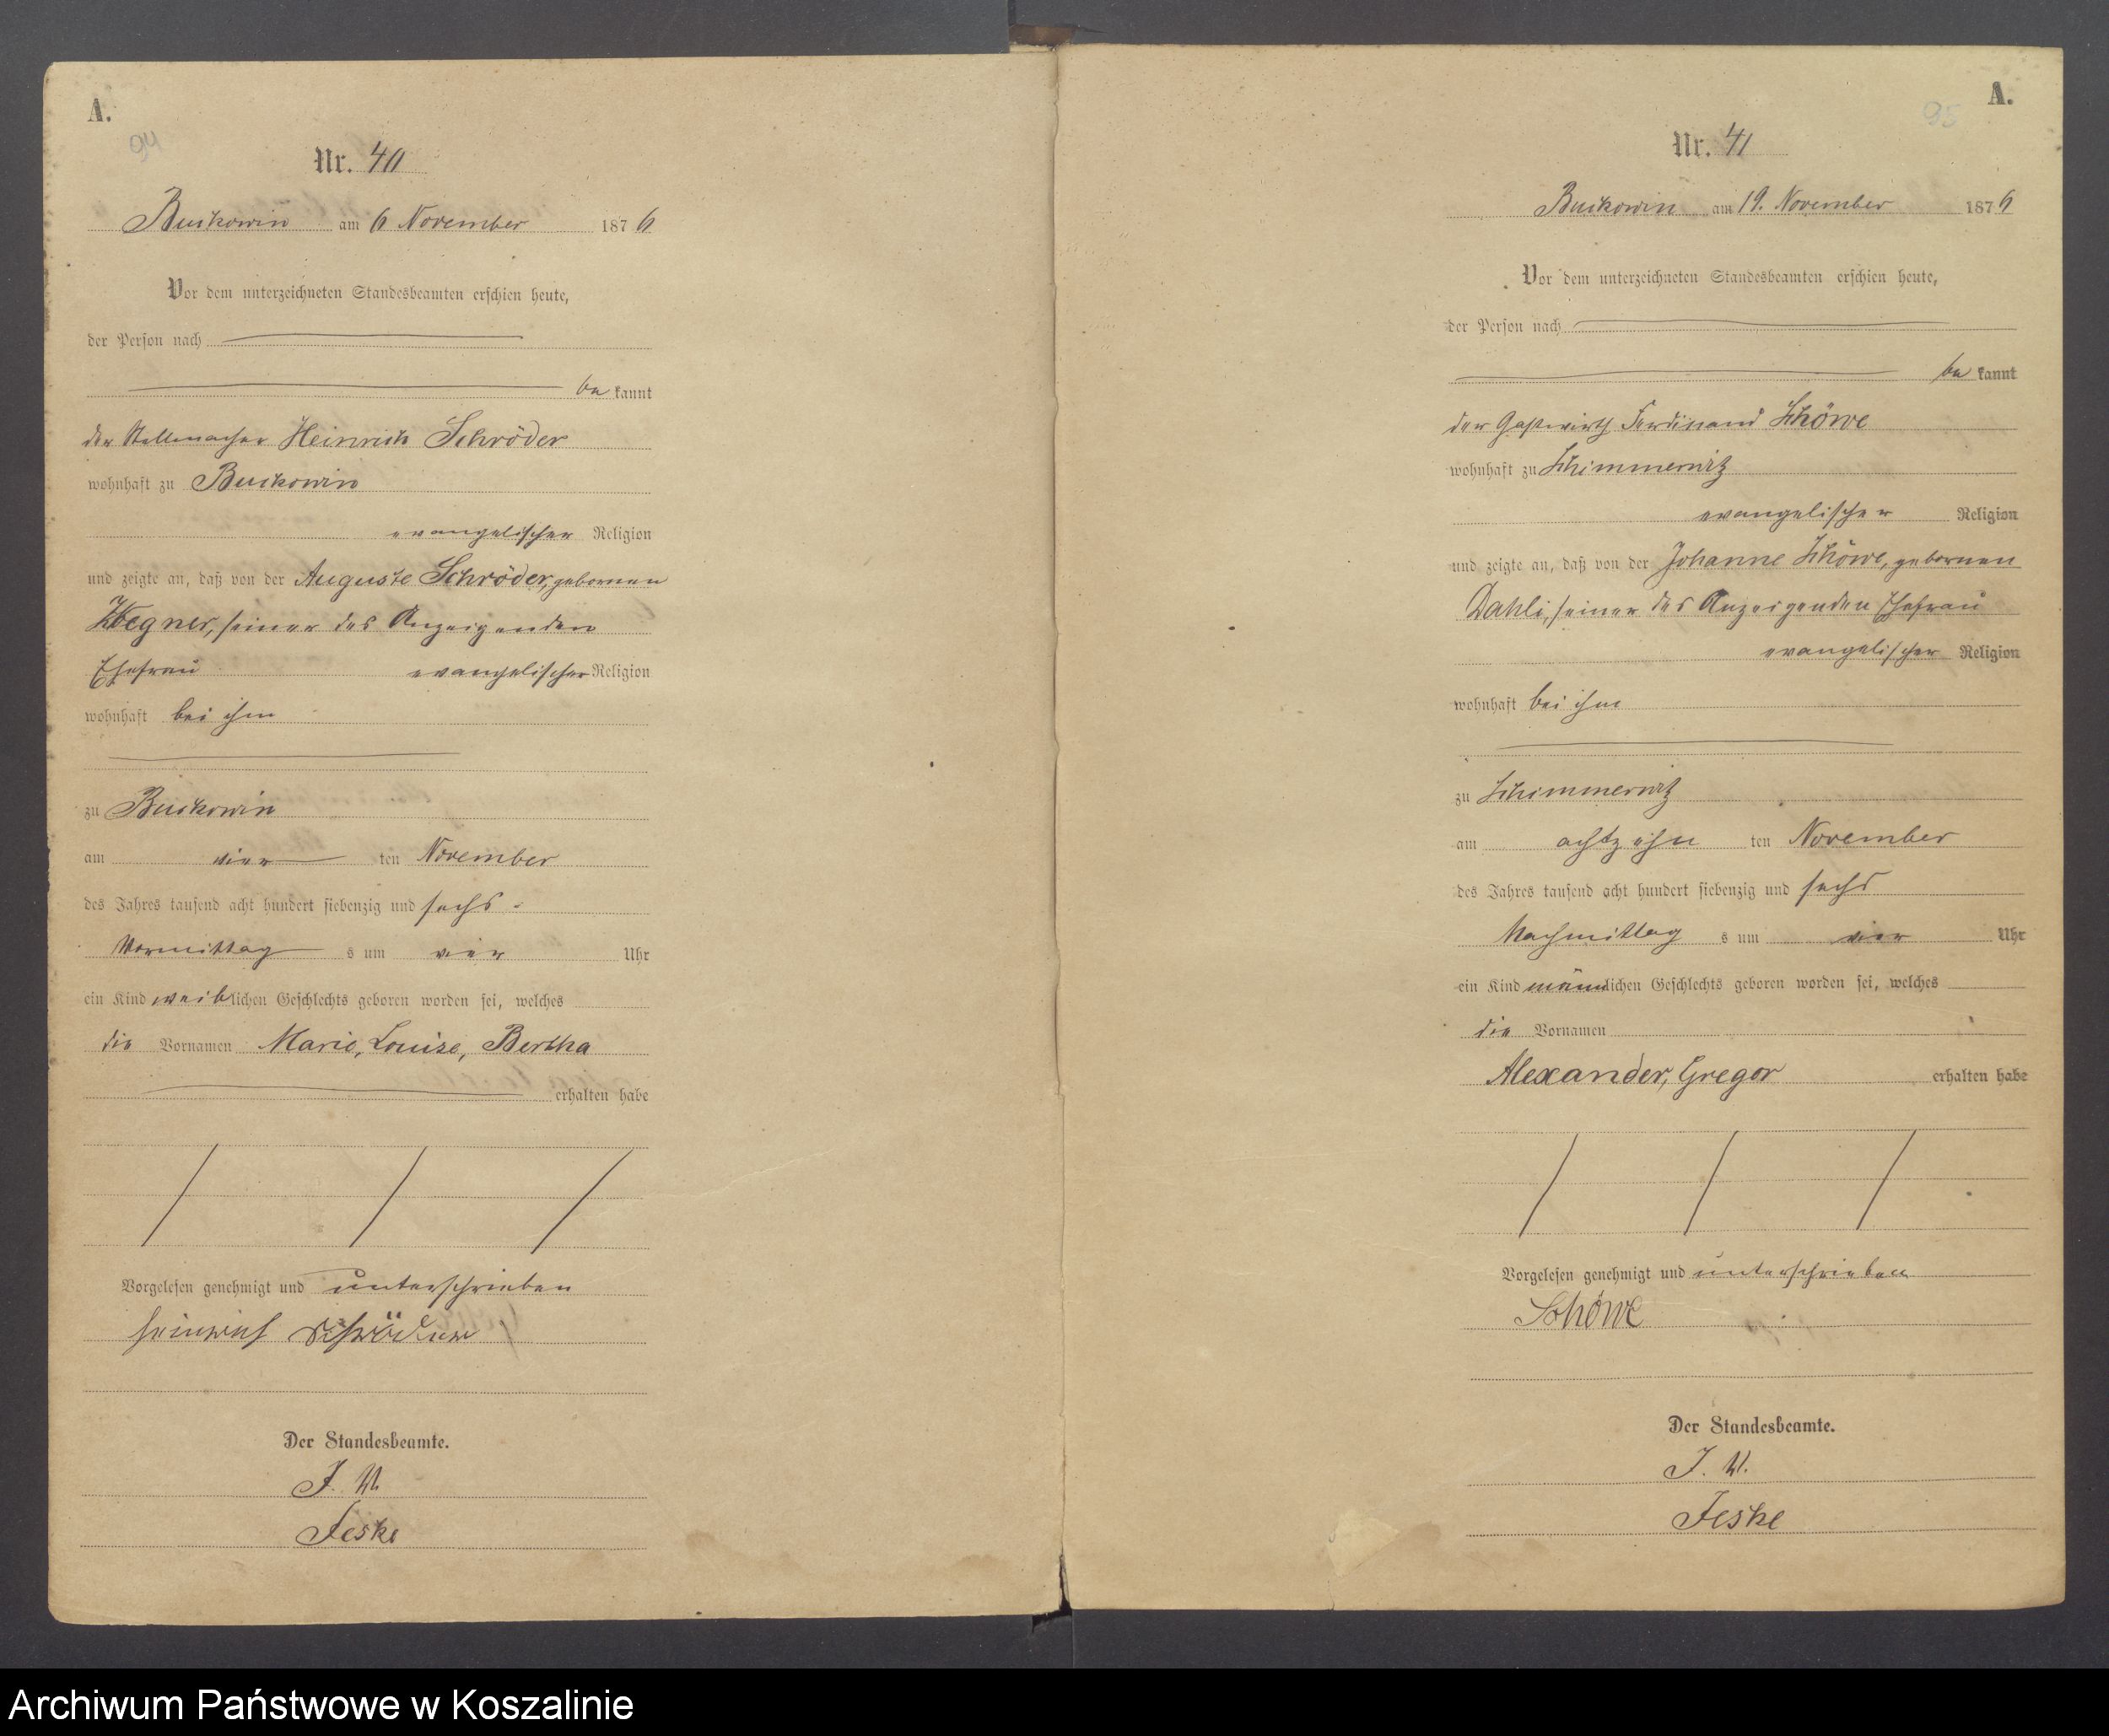 A.
94
Nr. 40
Buckowin am 6 November 1876
Vor dem unterzeichneten Standesbeamten erschien heute,
der Person nach
be kannt
der Stellmacher Heinrich Schröder
wohnhaft zu Buckowin
evangelischer Religion
und zeigte an, daß von der Auguste Schröder, gebornen
Wegner, seiner des Anzeigenden
Ehefrau evangelischer Religion
wohnhaft bei ihm
zu Buckowin
am vier ten November
des Jahres tausend acht hundert siebenzig und sechs
Vormittag s um vier Uhr
ein Kind weiblichen Geschlechts geboren worden sei, welches
die Vornamen Marie, Louise, Bertha
erhalten habe
Vorgelesen genehmigt und unterschrieben
Heinrich Schröder
Der Standesbeamte.
J. V.
Jeske
A.
95
Nr. 41
Buckowin am 19. November 1876
Vor dem unterzeichneten Standesbeamten erschien heute,
der Person nach
be kannt
der Gastwirth Ferdinand Schöwe
wohnhaft zu Schimmerwitz
evangelischer Religion
und zeigte an, daß von der Johanne Schöwe, gebornen
Dahli, seiner des Anzeigenden Ehefrau
evangelischer Religion
wohnhaft bei ihm
zu Schimmerwitz
am achtzehn ten November
des Jahres tausend acht hundert siebenzig und sechs
Nachmittag s um vier Uhr
ein Kind männlichen Geschlechts geboren worden sei, welches
die Vornamen
Alexander, Gregor erhalten habe
Vorgelesen genehmigt und unterschrieben
Schöwe
Der Standesbeamte.
J. V.
Jeske
Archiwum Państwowe w Koszalinie